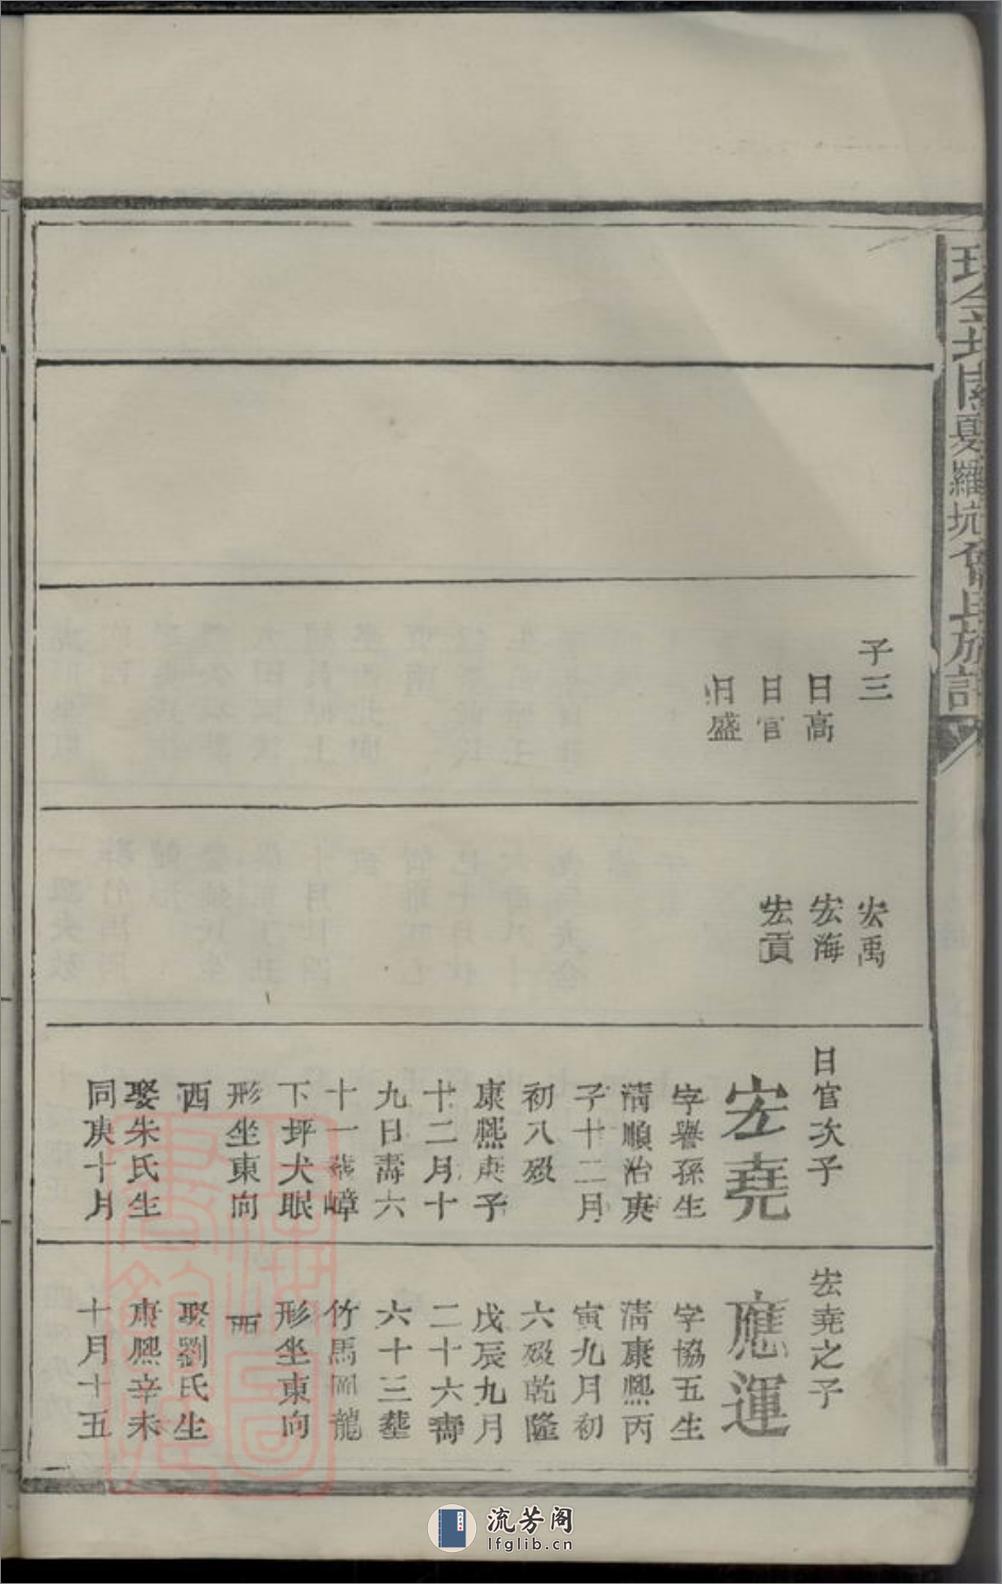 金
夏羅坑曾氏族譜
子三
日高
日官
日盛
宏禹
宏海
宏貢
日官次子
宏堯
字譽孫生
淸順治庚
子十二月
初八歿
康熙庚子
十二月十
九日壽六
十一葬嶂
下坪犬眠
形坐東向
西
娶朱氏生
同庚十月
宏堯之子
應運
字協五生
淸康熙丙
寅九月初
六歿乾隆
戊辰九月
二十六壽
六十三塟
竹馬岡龍
形坐東向
西
娶劉氏生
康熙辛未
十月十五
流芳阁
lfglib.cn